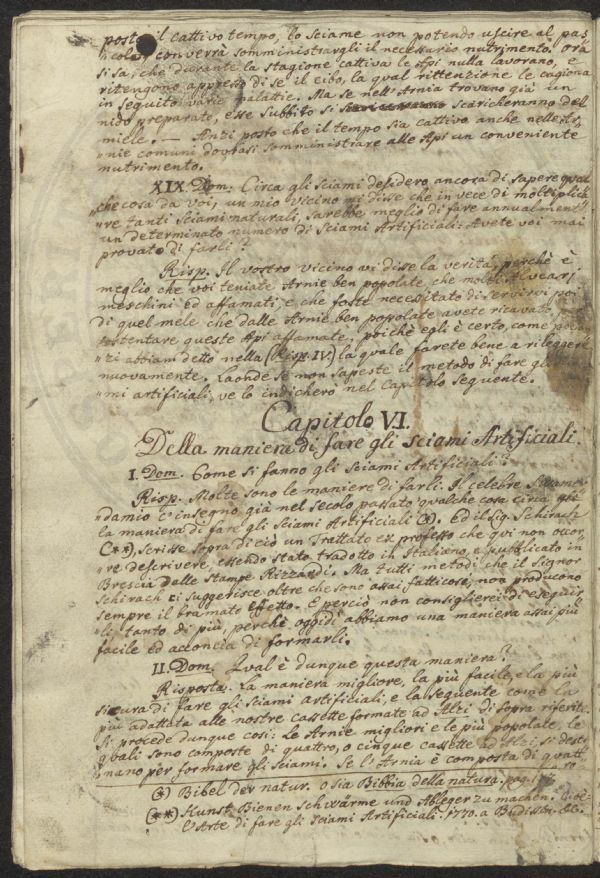 posto il cattivo tempo, lo sciame non potendo uscire al pas=
"colo, converrà somministrargli il necessario nutrimento. ora
si sa, che durante la stagione cattiva le Api nulla lavorano, e
ritengono appresso di se il cibo, la qual rittenzione le cagiona
in seguito varie malattie. Ma se nell'Arnia trovano già un
nido preparato, esse subbito si scaricheranno del
miele. — Anzi posto che il tempo sia cattivo anche nelle Ar=
"nie comuni dovrasi somministrare alle Api un conveniente
nutrimento.
XIX Dom. Circa gli sciami desidero ancora di sapere qual=
"che cosa da voi, un mio vicino mi disse che in vece di moltiplica=
"re tanti sciami naturali, sarebbe meglio di fare annualmente
un determinato numero di sciami Artificiali: Avete voi mai
provato di farli?
Risp. Il vostro vicino vi disse la verità, perchè è
meglio che voi teniate Arnie ben popolate, che molti Alvearj
meschini ed affamati, e che foste necessitato di servirvi poi
di quel mele che dalle Arnie ben popolate avete ricavato,
sostentare queste Api affamate, poichè egli è certo, come poc'an
"zi abbiam detto nella (Risp. IV.) la quale farete bene a rileggere
nuovamente. Laonde se non sapeste il metodo di fare gli
"mi artificiali, ve lo indicherò nel Capitolo seguente.
Capitolo VI.
Della maniera di fare gli sciami Artificiali.
I. Dom. Come si fanno gli sciami Artificiali?
Risp. Molte sono le maniere di farli. Il celebre Swamer
"damio c'insegnò già nel secolo passato qualche cosa circa
la maniera di fare gli sciami Artificiali (*). Ed il Sig. Schirach
(**), scrisse sopra di ciò un Trattato ex professo che qui non occor=
"re descrivere, essendo stato tradotto in Italieno, e pubblicato in
Brescia dalle stampe Rizzardi. Ma tutti metodi che il Signor
Schirach ci suggerisce oltre che sono assai fatticosi, non producono
sempre il bramato effetto. E perciò non consiglierei di eseguir=
"li, tanto di più, perchè oggidì abbiamo una maniera assai più
facile ed acconcia di formarli.
II. Dom. Qual è dunque questa maniera?
Risposta. La maniera migliore, la più facile, e la più
sicura di fare gli sciami artificiali, è la seguente come la
più adattata alle nostre cassette formate ad Alzi di sopra riferite.
Si procede dunque così: Le Arnie migliori e le più popolate, le
quali sono composte di quattro, o cinque cassette ad Alzi, si desti=
"nano per formare gli sciami. Se l'Arnia è composta di quatt
(*) Bibel der natur. o sia Bibbia della natura. pag.
(**) Kunst Bienen Schwärme und Ableger zu machen. Cioè
L'Arte di fare gli sciami Artificiali. 1770. a Budissin. &c.